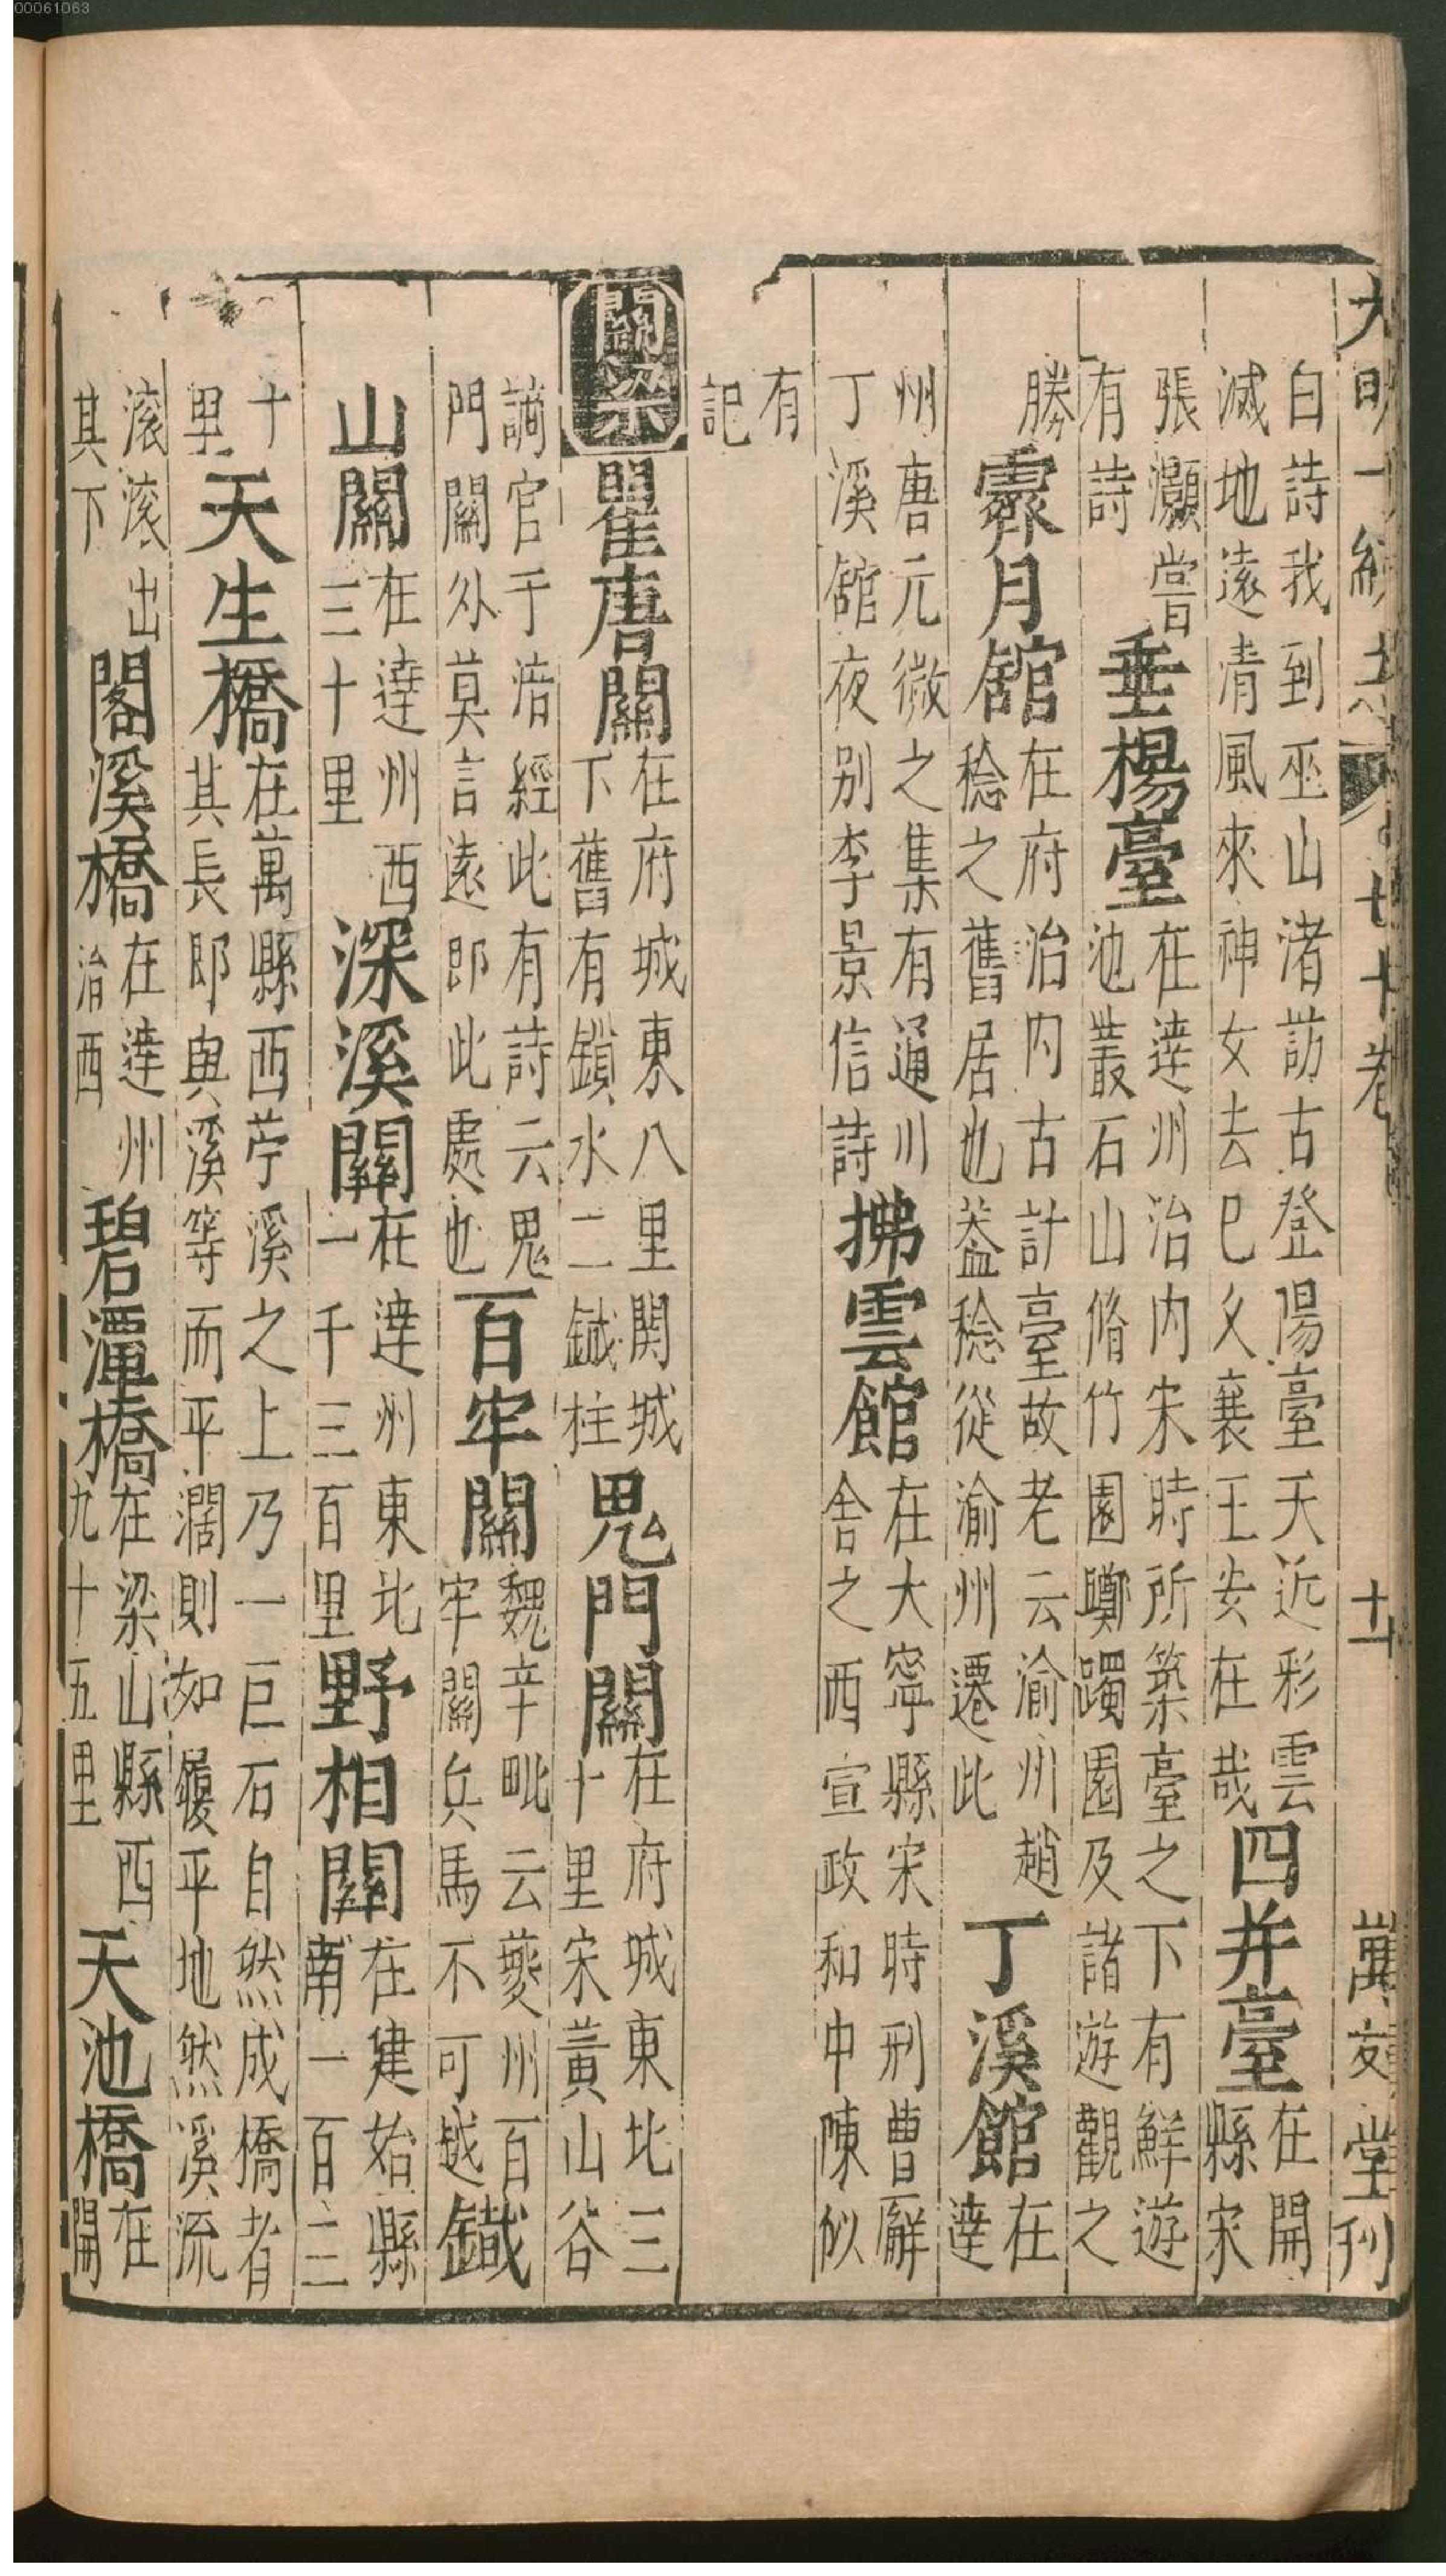 大明一統志 七十卷 十一 堂刊
白詩我到巫山渚訪古登陽臺天近彩雲滅地遠清風來神女去已久襄王安在哉四并臺在開縣宋
張灝嘗有詩垂楊臺在達州治内宋時所築臺之下有鮮遊池叢石山脩竹園躑躅園及諸遊觀之
勝霽月館在府治内古計臺故老云渝州趙稔之舊居也葢稔從渝州遷此丁溪館在達
州唐元微之集有通川丁溪館夜别李景信詩拂雲館在大寧縣宋時刑曹廨舍之西宣政和中陳似
有記
關梁瞿唐關在府城東八里関城下舊有鎖水二鐵柱鬼門關在府城東北三十里宋黃山谷
謫官于涪經此有詩云鬼門關外莫言遠即此處也百牢關魏辛毗云夔州百牢關兵馬不可越鐵
山關在達州西三十里深溪關在達州東北一千三百里野相關在建始縣南一百二
十里天生橋在萬縣西苧溪之上乃一巨石自然成橋者其長即與溪等而平濶則如履平地然溪流
滚滚出其下閣溪橋在達州治西碧潭橋在梁山縣西九十五里天池橋在開